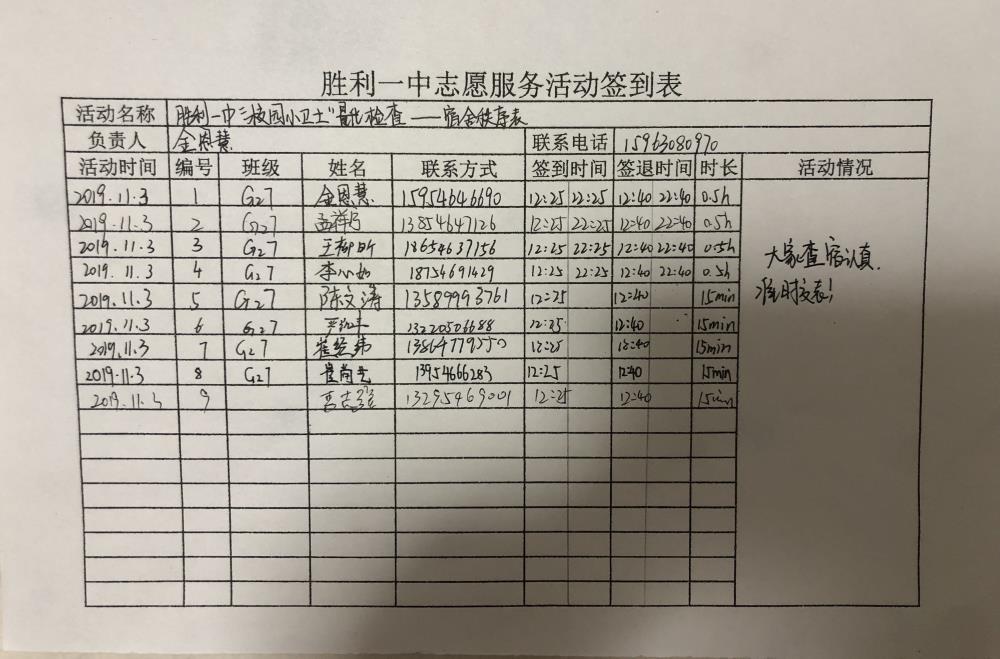 胜利一中志愿服务活动签到表
活动名称 胜利一中"校园小卫士"量化检查——宿舍秩序表
负责人 金恩慧 联系电话 15963080970
活动时间 编号 班级 姓名 联系方式 签到时间 签退时间 时长 活动情况
2019.11.3 1 G27 金恩慧 15954646690 12:25 22:25 12:40 22:40 0.5h
2019.11.3 2 G27 13854647126 12:25 22:25 12:40 22:40 0.5h
2019.11.3 3 G27 王柳昕 18654637156 12:25 22:25 12:40 22:40 0.5h
2019.11.3 4 G27 李心如 18754691429 12:25 22:25 12:40 22:40 0.5h
2019.11.3 5 G27 陈文涛 13589993761 12:25 12:40 15min
2019.11.3 6 G27 13220506688 12:25 12:40 15min
2019.11.3 7 G27 崔经纬 12:25 12:40 15min
2019.11.3 8 G27 13954666283 12:25 12:40 15min
2019.11.3 9 13295469001 12:25 12:40 15min
大家查宿认真,
准时交表!